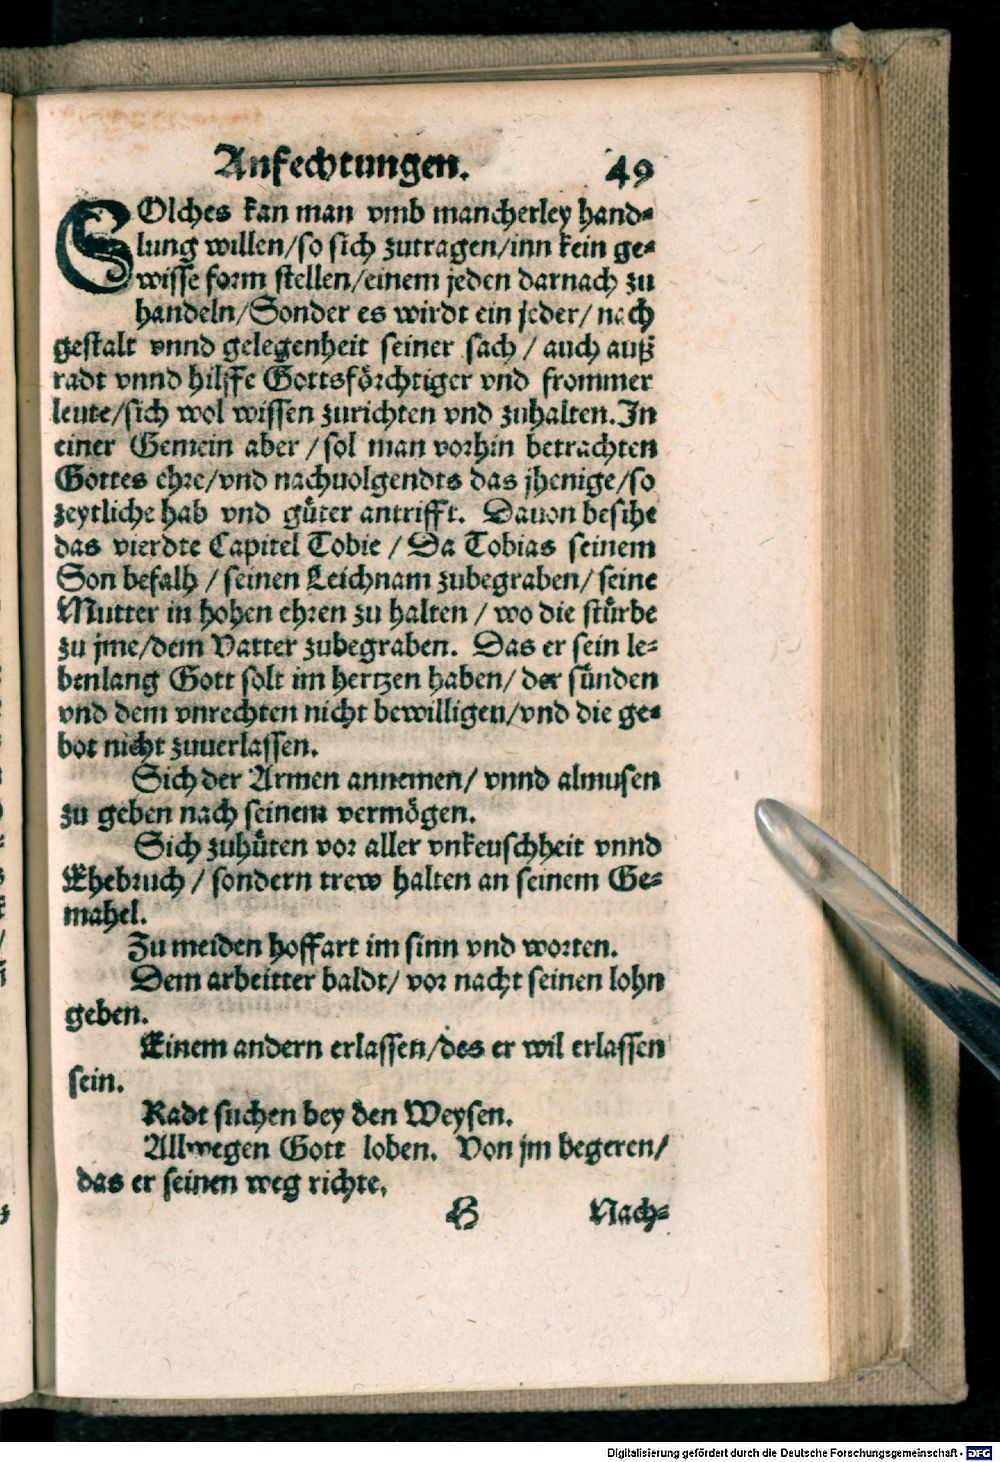 Anfechtungen. 49
SOlches kan man vmb mancherley hand-
lung willen/so sich zutragen/inn kein ge-
wisse form stellen/einem jeden darnach zu
handeln/Sonder es wirdt ein jeder/ nach
gestalt vnnd gelegenheit seiner sach / auch auß
radt vnnd hilffe Gottsförchtiger vnd frommer
leute/sich wol wissen zurichten vnd zuhalten.In
einer Gemein aber / sol man vorhin betrachten
Gottes ehre/vnd nachuolgendts das jhenige/so
zeytliche hab vnd gůter antrifft. Dauon besihe
das vierdte Capitel Tobie / Da Tobias seinem
Son befalh / seinen Leichnam zubegraben/ seine
Mutter in hohen ehren zu halten / wo die stůrbe
zu jme/dem Vatter zubegraben. Das er sein le-
benlang Gott solt im hertzen haben/ der sůnden
vnd dem vnrechten nicht bewilligen/vnd die ge-
bot nicht zuuerlassen.
Sich der Armen annemen/ vnnd almusen
zu geben nach seinem vermögen.
Sich zuhůten vor aller vnkeuschheit vnnd
Ehebruch / sondern trew halten an seinem Ge-
mahel.
Zu meiden hoffart im sinn vnd worten.
Dem arbeitter baldt/ vor nacht seinen lohn
geben.
Einem andern erlassen/des er wil erlassen
sein.
Radt suchen bey den Weysen.
Allwegen Gott loben. Von jm begeren/
das er seinen weg richte.
H Nach-
Digitalisierung gefördert durch die Deutsche Forschungsgemeinschaft - DFG